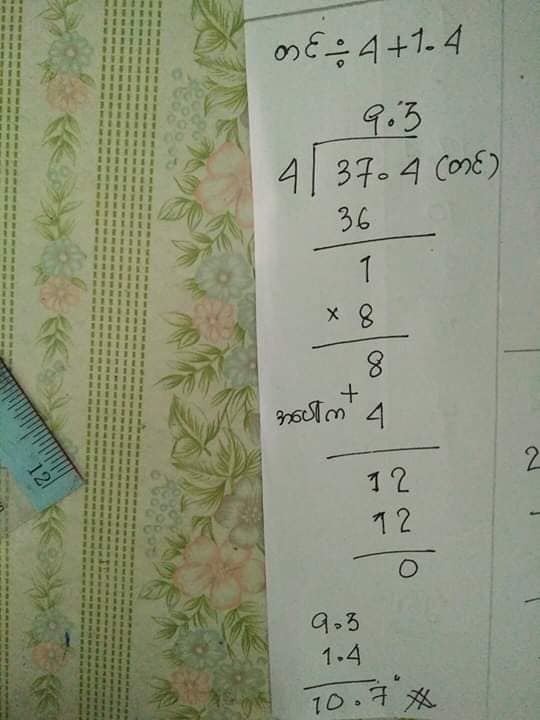 တင် ÷ 4 + 1.4
9.3
4 37.4 (တင်)
36
1
× 8
8
+
အပေါ်က 4
12
12
0
9.3
1.4
10.7
12
2